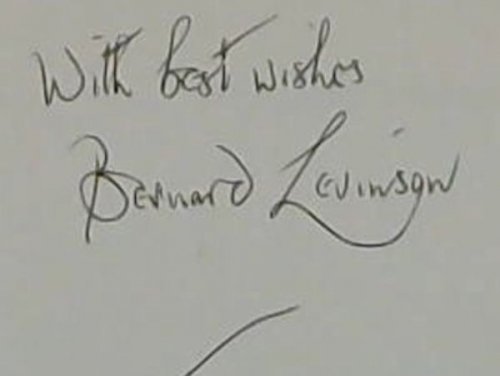 With best wishes
Bernard Levinson